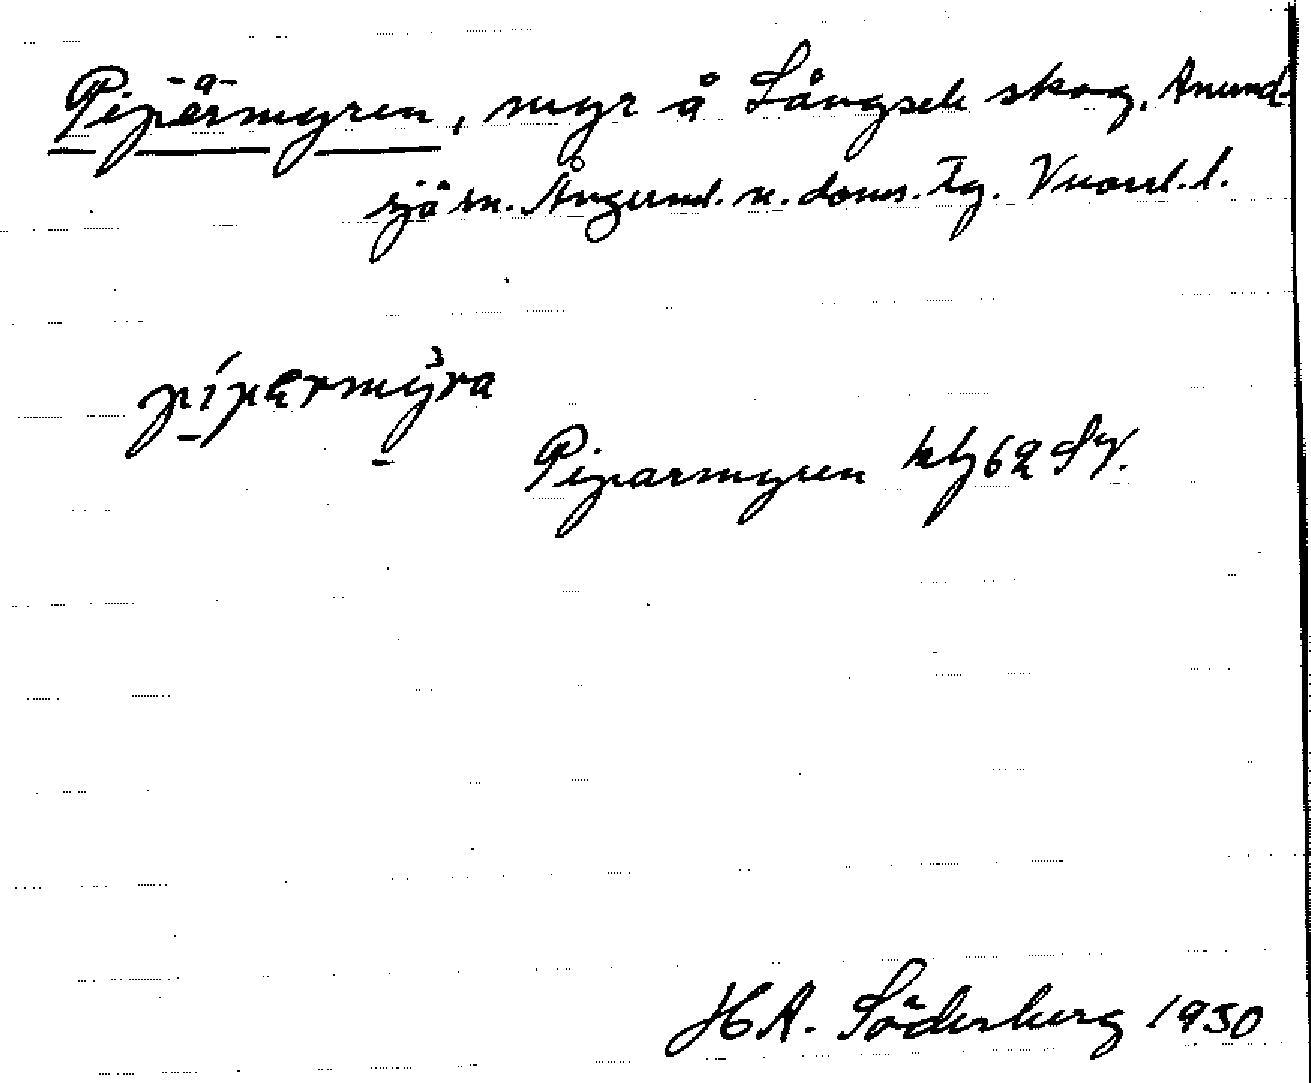 -a-
Pipermyren, myr å Långsele skog, Anund-
sjö sn. Ångerml. n. doms. Tg. Vnorrl. l.
pipərmyra
Piparmyren kbl 62 SV.
H A. Söderberg 1930